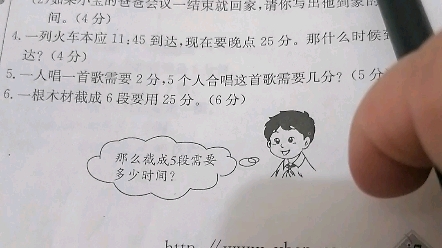 (2)如果小宝的爸爸会议一结束就回家,请你写出他到家的
间。(4分)
4.一列火车本应11:45到达,现在要晚点25分。那什么时候到
达?(4分)
5.一人唱一首歌需要2分,5个人合唱这首歌需要几分?(5分
6.一根木材截成6段要用25分。(6分)
那么截成5段需要
多少时间?
http://www